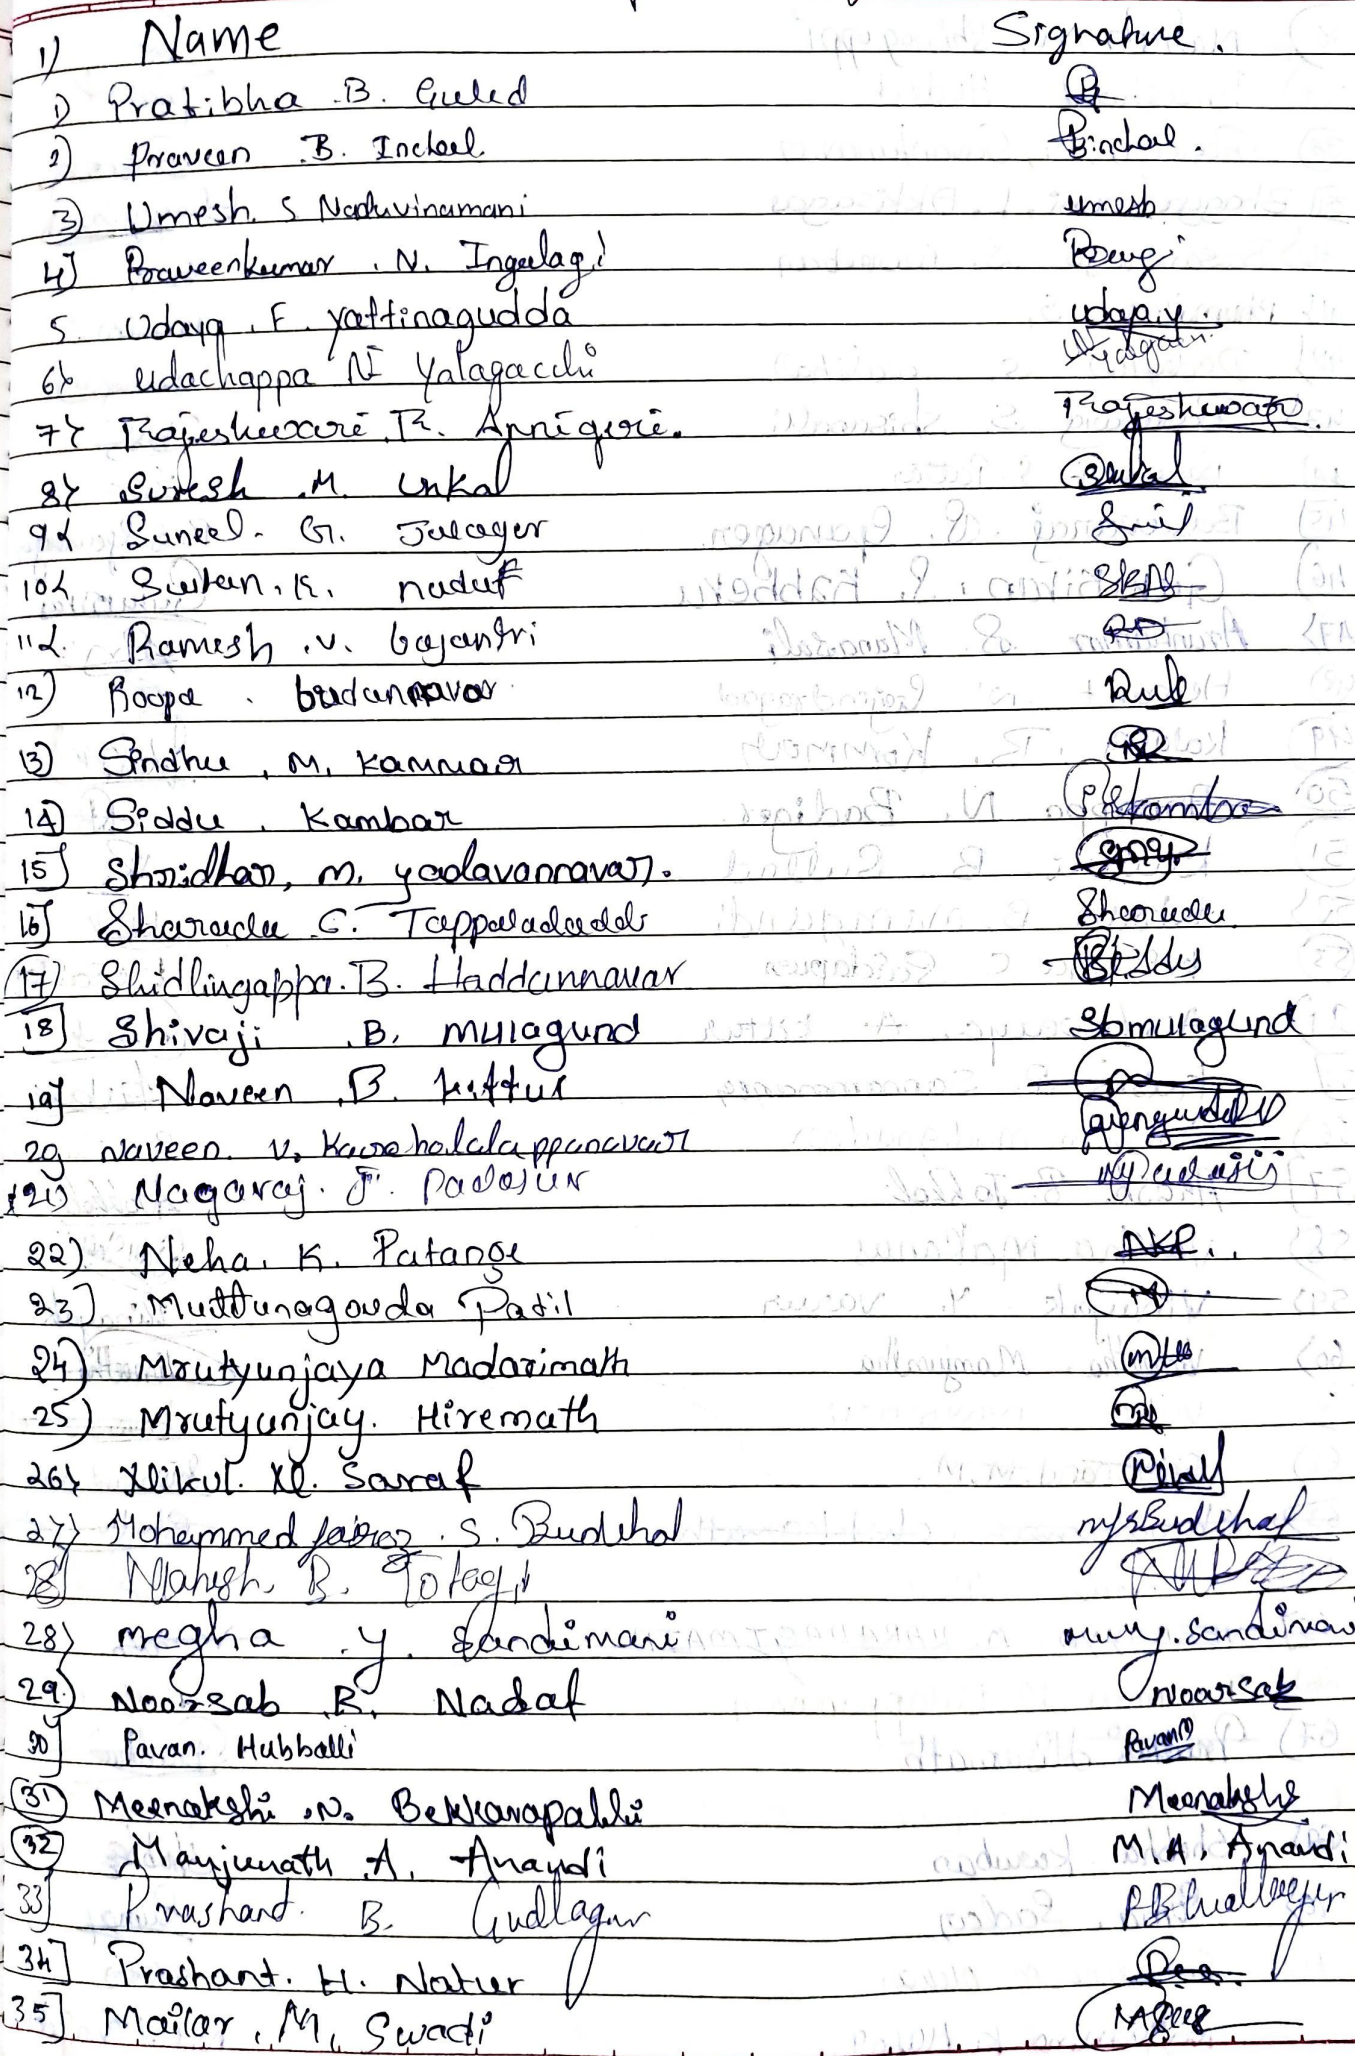 1) Name Signature.
1) Pratibha .B. Guled
2) Praveen .B. Inchal Binchal.
3) Umesh. S Naduvinamani umesh
4] Praveenkumar . N. Ingalagi
5. Udaya . F. Yattinagudda udaya.y.
6) udachappa N Yalagacchi
7) Rajeshwari. R. Annigeri. Rajeshwari
8) Suresh .M. Unkal Sunkal
9) Suneel. G. Julager Sunil
10) Sultan. K. nadaf SKN
11) Ramesh .v. Gajantri
12) Roopa . budannavar
13) Sindhu . M. Kammar
14) Siddu . Kambar
15] Shridhar, M. yadavannavar. SMY
16] Sharada .C. Tappaladaddi Sharada
17) Shidlingappa. B. Haddannavar
18] Shivaji .B. Mulagund Sbmulagund
19] Naveen .B. Kittur
20 Naveen. V.
21) Nagaraj. F. Padasur
22) Neha. K. Patange NKP..
23] Muttunagouda Patil
24) Mrutyunjaya Madarimath
25) Mrutyunjay. Hiremath
26) Nikul. N. Saraf Nikul
27) Mohammed fairoz . S. Budihal mfsBudihal
28] Mahesh. B. Totagi
28) megha .y. Sandimani M.y. Sandimani
29.) Noorsab .R. Nadaf Noorsab
30] Pavan. Hubballi Pavan
31) Meenakshi .N. Bekkarapalli Meenakshi
32) Manjunath .A. Anandi M.A. Anandi
33] Prashant. B. Gudlagur
34] Prashant. H. Natur
35] Mailar . M. Swadi